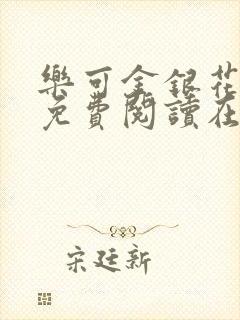 樂可金銀花
免費閱讀在
宋廷新